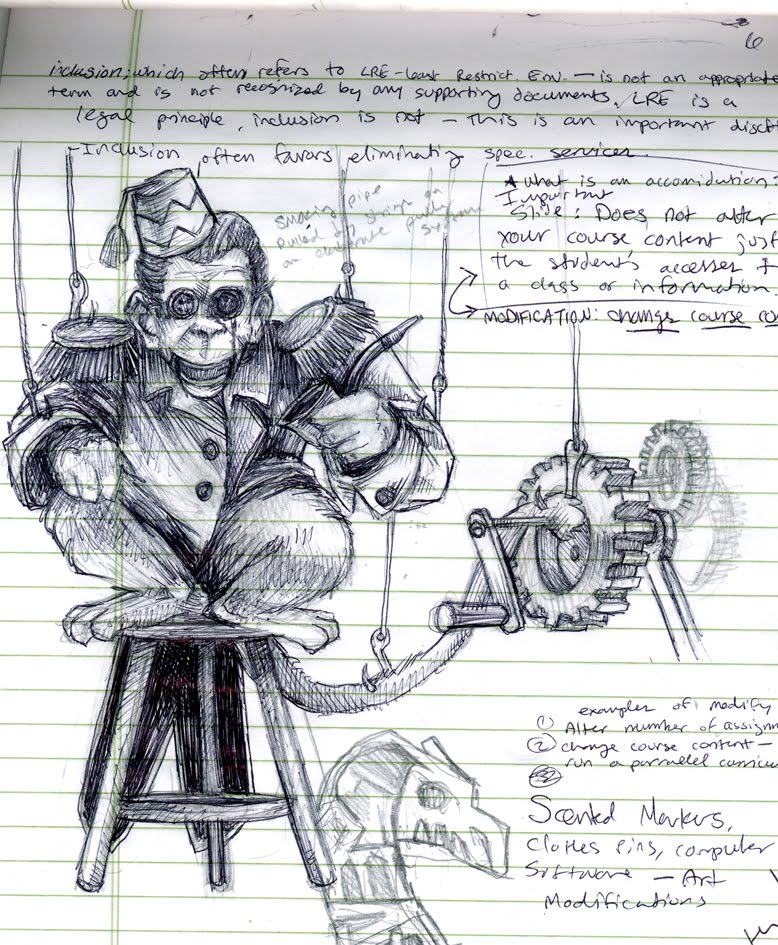 6
inclusion, which often refers to LRE - Least Restrict. Env. — is not an appropriate
term and is not recognized by any supporting documents. LRE is a
legal principle, inclusion is not - This is an important disct
- Inclusion often favors eliminating spec. services.
Smoking pipe
pulled by strings on
an elaborate pulley
system
what is an accomidation:
Important
Slide: Does not alter
your course content just
the student's accesses t
a class or information.
MODIFICATION: changes course co
examples of modify
① Alter number of assignm
② change course content —
run a parralel curricu
Scented Markers,
Clothes Pins, computer
Software — Art
Modifications